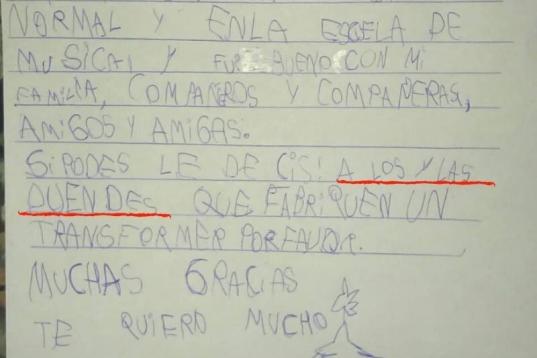 NORMAL Y EN LA ESCUELA DE
MUSICA, Y FUI BUENO CON MI
FAMILIA, COMPAÑEROS Y COMPAÑERAS,
AMIGOS Y AMIGAS.
SI PODES LE DE CIS! A LOS Y LAS
DUENDES QUE FABRIQUEN UN
TRANSFORMER POR FAVOR.
MUCHAS GRACIAS
TE QUIERO MUCHO